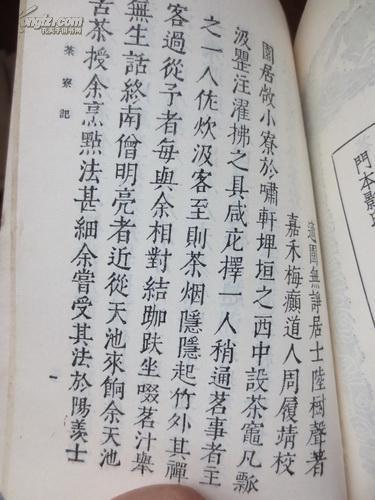 門本
適園無諍居士陸樹聲著
嘉禾梅癲道人周履靖校
園居敞小寮於嘯軒埤垣之西中設茶竈凡瓢
汲罌注濯拂之具咸庀擇一人稍通茗事者主
之一人佐炊汲客至則茶烟隱隱起竹外其禪
客過從予者每與余相對結跏趺坐啜茗汁舉
無生話終南僧明亮者近從天池來餉余天池
苦茶授余烹點法甚細余嘗受其法於陽羨士
茶寮記
一
孔夫子旧书网